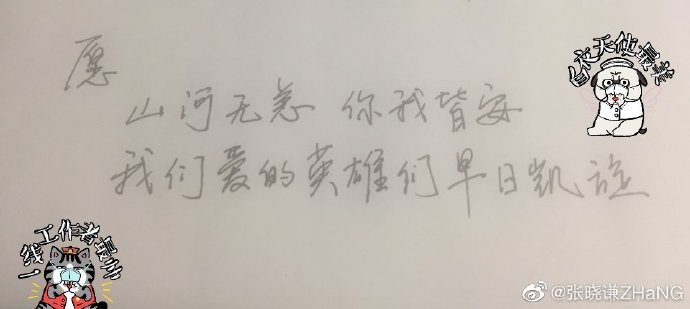 愿
山河无恙 你我皆安
我们爱的英雄们早日凯旋
白衣天使最美
一线工作者最帅
@张晓谦ZHaNG